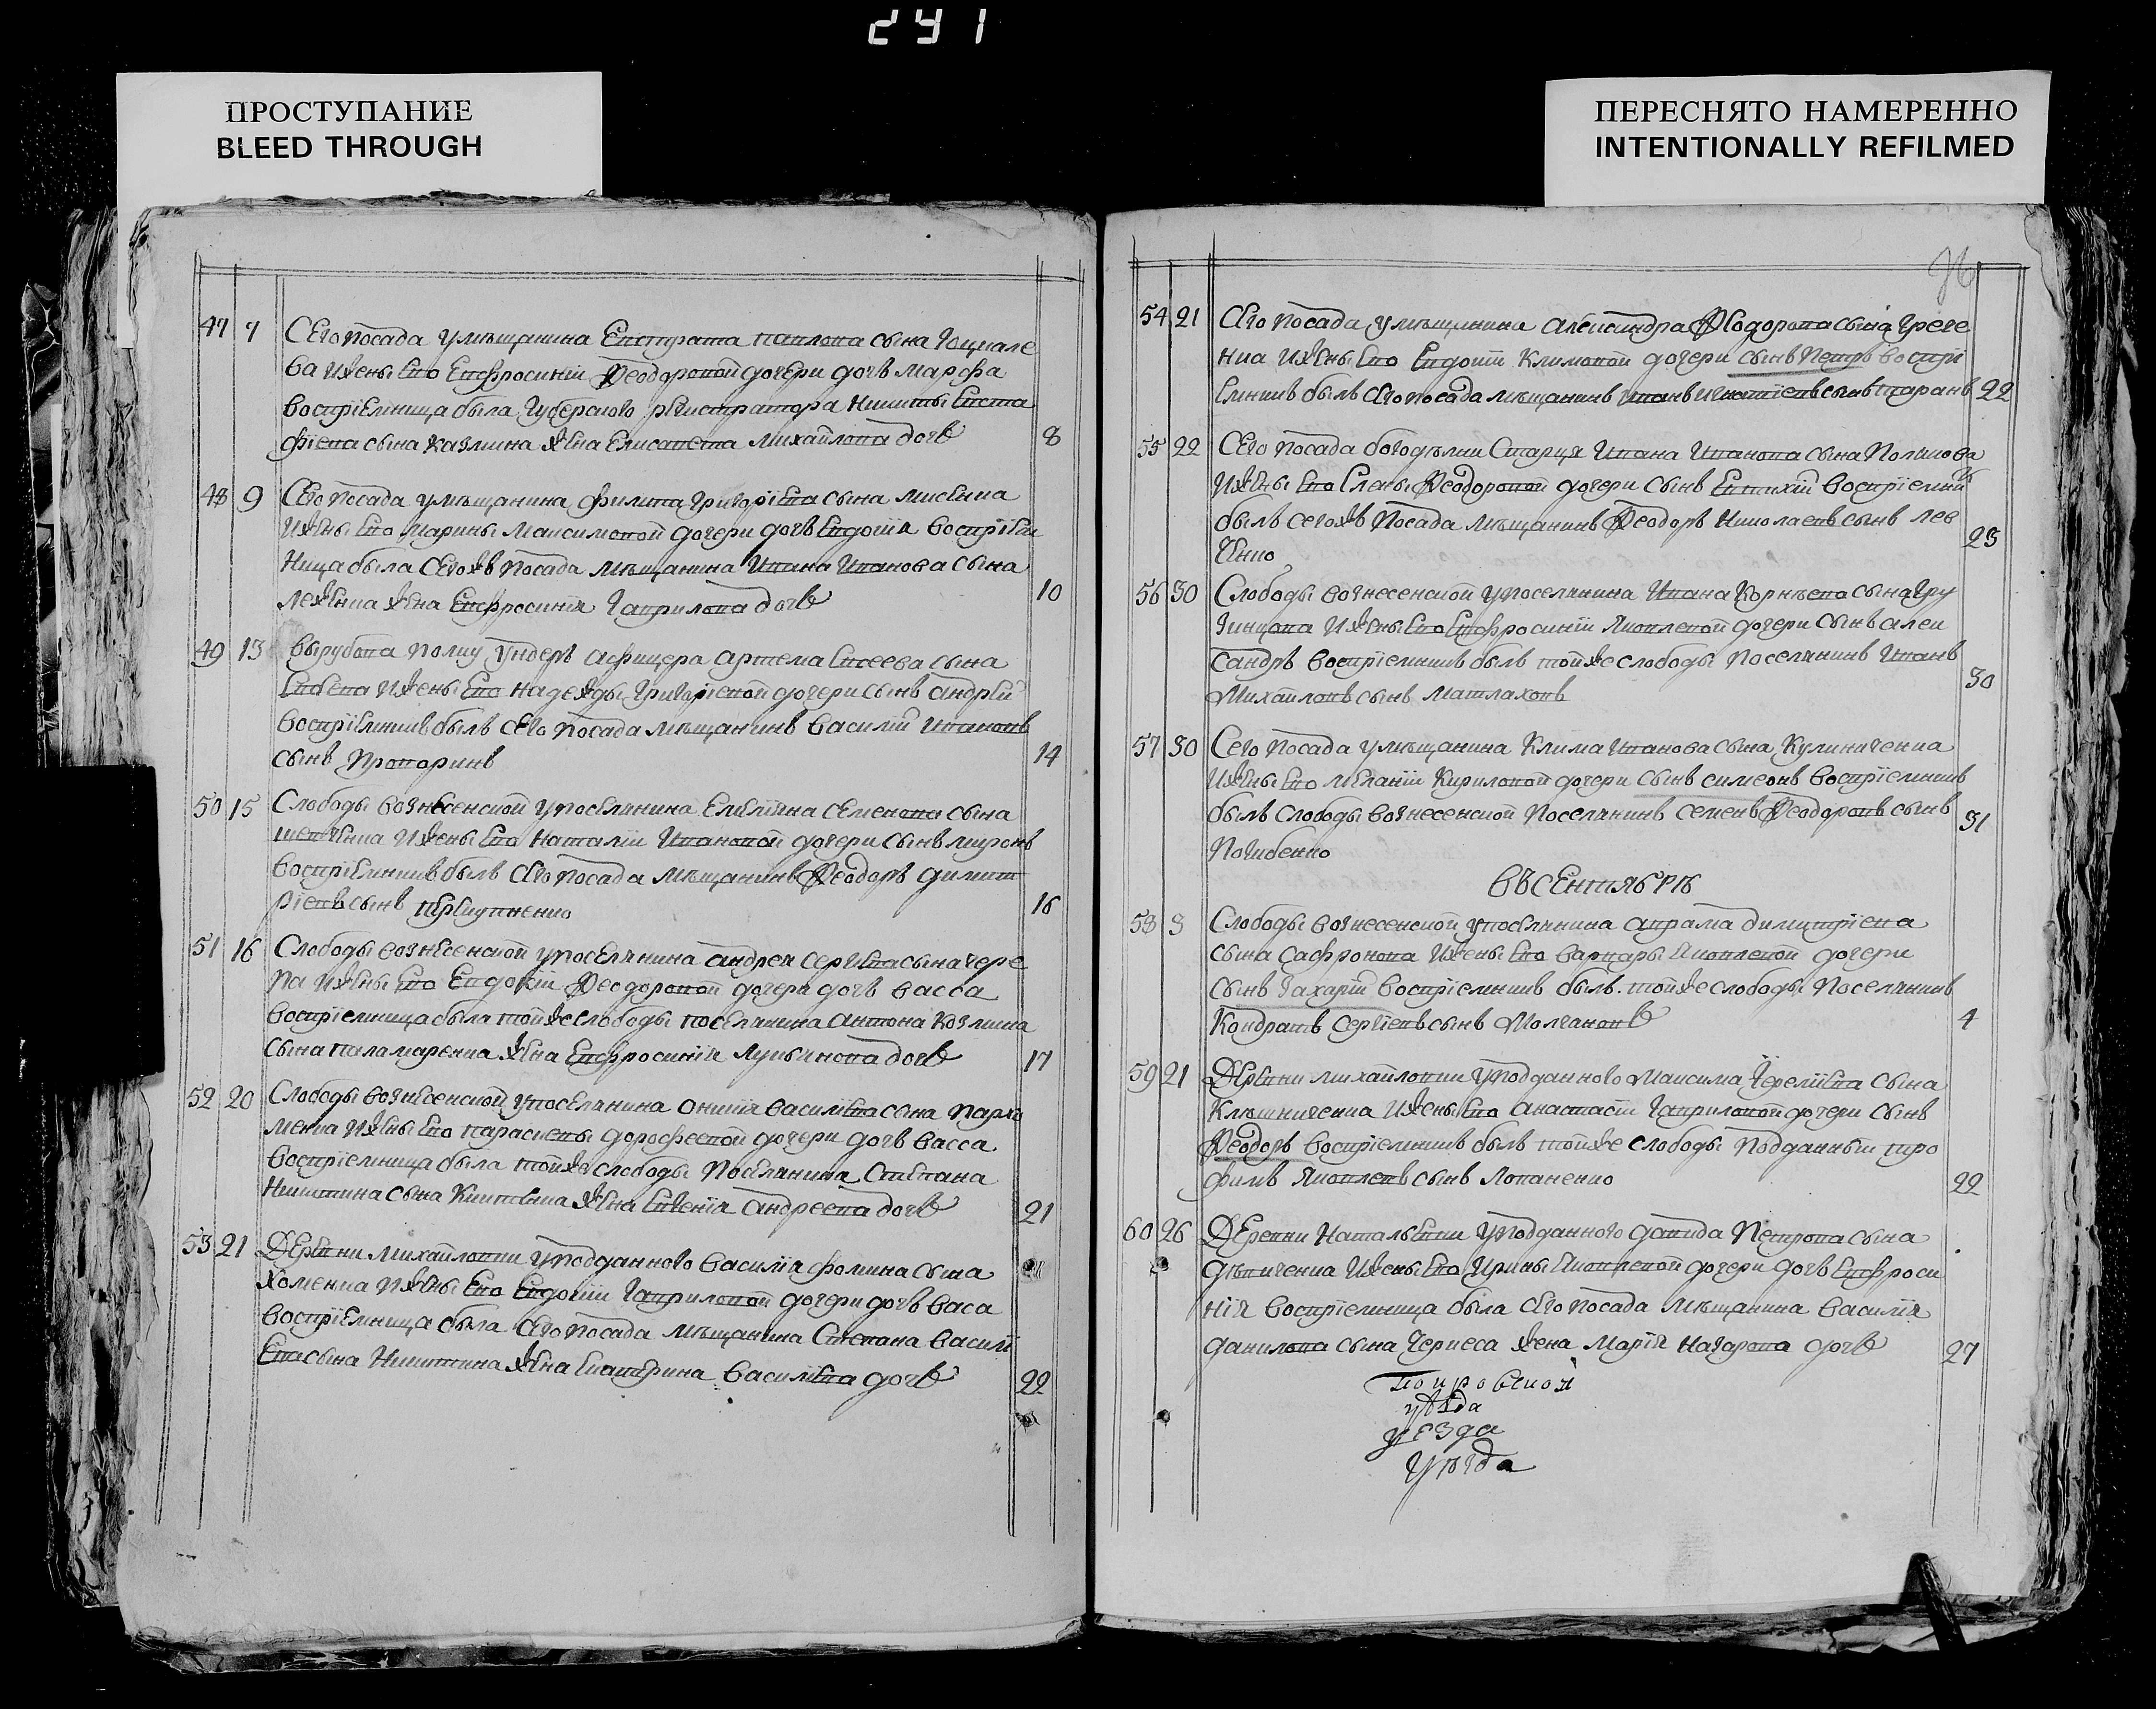 291
ПРОСТУПАНИЕ
BLEED THROUGH
ПЕРЕСНЯТО НАМЕРЕННО
INTENTIONALLY REFILMED
47 7 Сего посада умѣщанина Евстрата павлова сына
ва ижены Его Евфросиніи Феодоровой дочери дочь марфа
воспріемница была Губерского регистратора никиты Евста
фіева сына казмина жена Елисавета михайлова дочь 8
48 9 Сего посада умѣщанина филипа григоріева сына
ижены Его марины максимовой дочери дочь Евдокія воспріем
ница была сегожъ посада мѣщанина ивана иванова сына
жена Евфросинія гаврилова дочь 10
49 13 вырубова полку ундеръ афицера артема Евсеева сына
ижены Его надежды григоріевой дочери сынъ андрей
воспріемникъ былъ сего посада мѣщанинъ василий ивановъ
сынъ 14
50 15 Слободы вознесенской упоселянина Емеліяна семенова сына
ижены Его наталіи ивановой дочери сынъ миронъ
воспріемникъ былъ сего посада мѣщанинъ Феодоръ димит
ріевъ сынъ 16
51 16 Слободы вознесенской упоселянина андрея сергіева сына чере
па ижены Его Евдокіи Феодоровой дочери дочь васса
воспріемница была тойже слободы поселянина антона козмина
сына паламаренка жена Евфросинія лукьянова дочь 17
52 20 Слободы вознесенской упоселянина онисия василіева сына пархо
менка ижены Его параскевы дорофеевой дочери дочь васса
воспріемница была тойже слободы поселянина Степана
никитина сына жена Евгенія андреева дочь 21
53 21 Деревни михайловки уподданного василія фомина сына
хоменка ижены Его Евдокіи гавриловой дочери дочь васа
воспріемница была сего посада мѣщанина Степана василі
Ева сына никитина жена Екатерина василіева дочь 22
54 21 Сего посада умѣщанина александра Феодорова сына грече
нка ижены Его Евдокіи климовой дочери сынъ петръ воспрі
емникъ былъ сего посада мѣщанинъ иванъ игнатіевъ сынъ таранъ 22
55 22 Сего посада богодѣлки старца ивана иванова сына полькова
ижены Его Елены Феодоровой дочери сынъ Евтихій воспріемник
былъ сегожъ посада мѣщанинъ Феодоръ николаевъ сынъ лев
ченко 23
56 30 Слободы вознесенской упоселянина ивана корнѣева сына гру
зинцова ижены Его Евфросиніи яковлевой дочери сынъ алек
сандръ воспріемникъ былъ тойже слободы поселянинъ иванъ
михайловъ сынъ матлаховъ 30
57 30 Сего посада умѣщанина клима иванова сына кулиниченка
ижены Его меланіи кириловой дочери сынъ симеонъ воспріемникъ
былъ слободы вознесенской поселянинъ семенъ Феодоровъ сынъ
погибенко 31
ВЪ СЕНТЯБРѢ
58 3 Слободы вознесенской упоселянина аврама димитріева
сына сафронова ижены Его варвары яковлевой дочери
сынъ захарій воспріемникъ былъ тойже слободы поселянинъ
кондратъ сергіевъ сынъ молчановъ 4
59 21 Деревни михайловки уподданного максима сына
ижены Его анастасіи гавриловой дочери сынъ
Феодоръ воспріемникъ былъ тойже слободы подданный тро
фимъ яковлевъ сынъ лопаненко 22
60 26 Деревни натальевки уподданного давида петрова сына
ижены Его ирины яковлевой дочери дочь Евфроси
нія воспріемница была сего посада мѣщанина василія
данилова сына черкеса жена марія назарова дочь 27
уѣзда
уезда
уѣзда